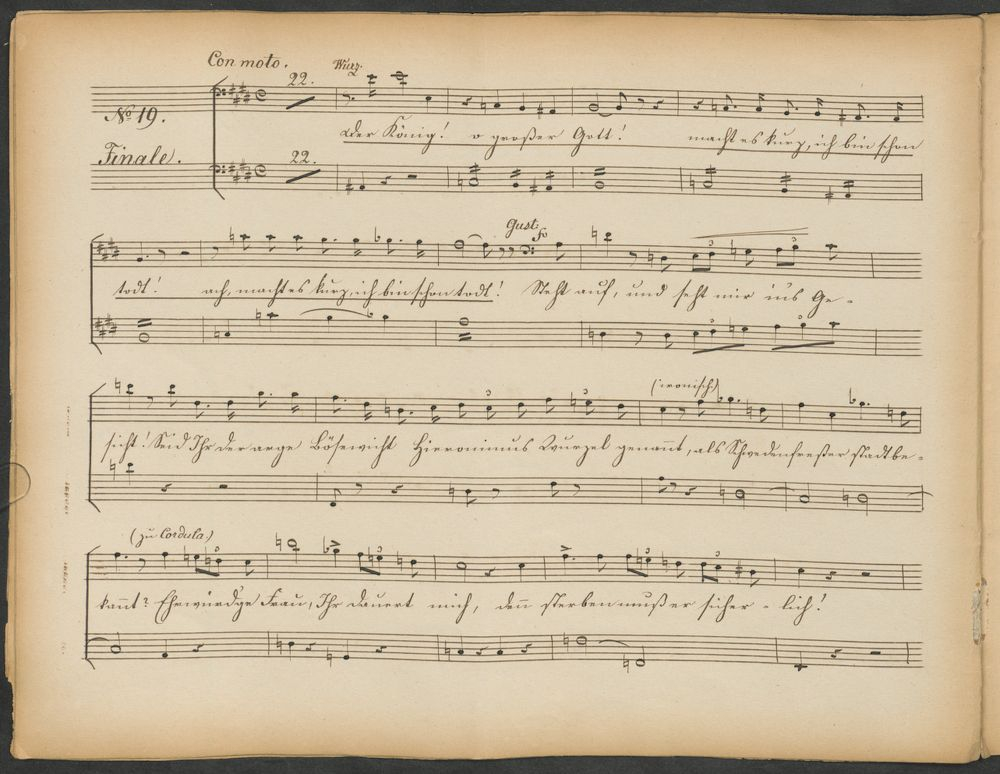 Con moto. Wurz.
22.
No 19.
Der König! o großer Gott! macht es kurz, ich bin schon
Finale.
22.
Gust:
todt! ach, macht es kurz, ich bin schon todt! Steht auf, und seht mir ins Ge-
(ironisch)
sicht! Seid Ihr der arge Bösewicht Hieronimus Wurzel genannt, als Schwedenfreßer stadtbe-
(zu Cordula.)
kannt? Ehrwürdge Frau, Ihr dauert mich, denn sterben muß er sicher-lich!